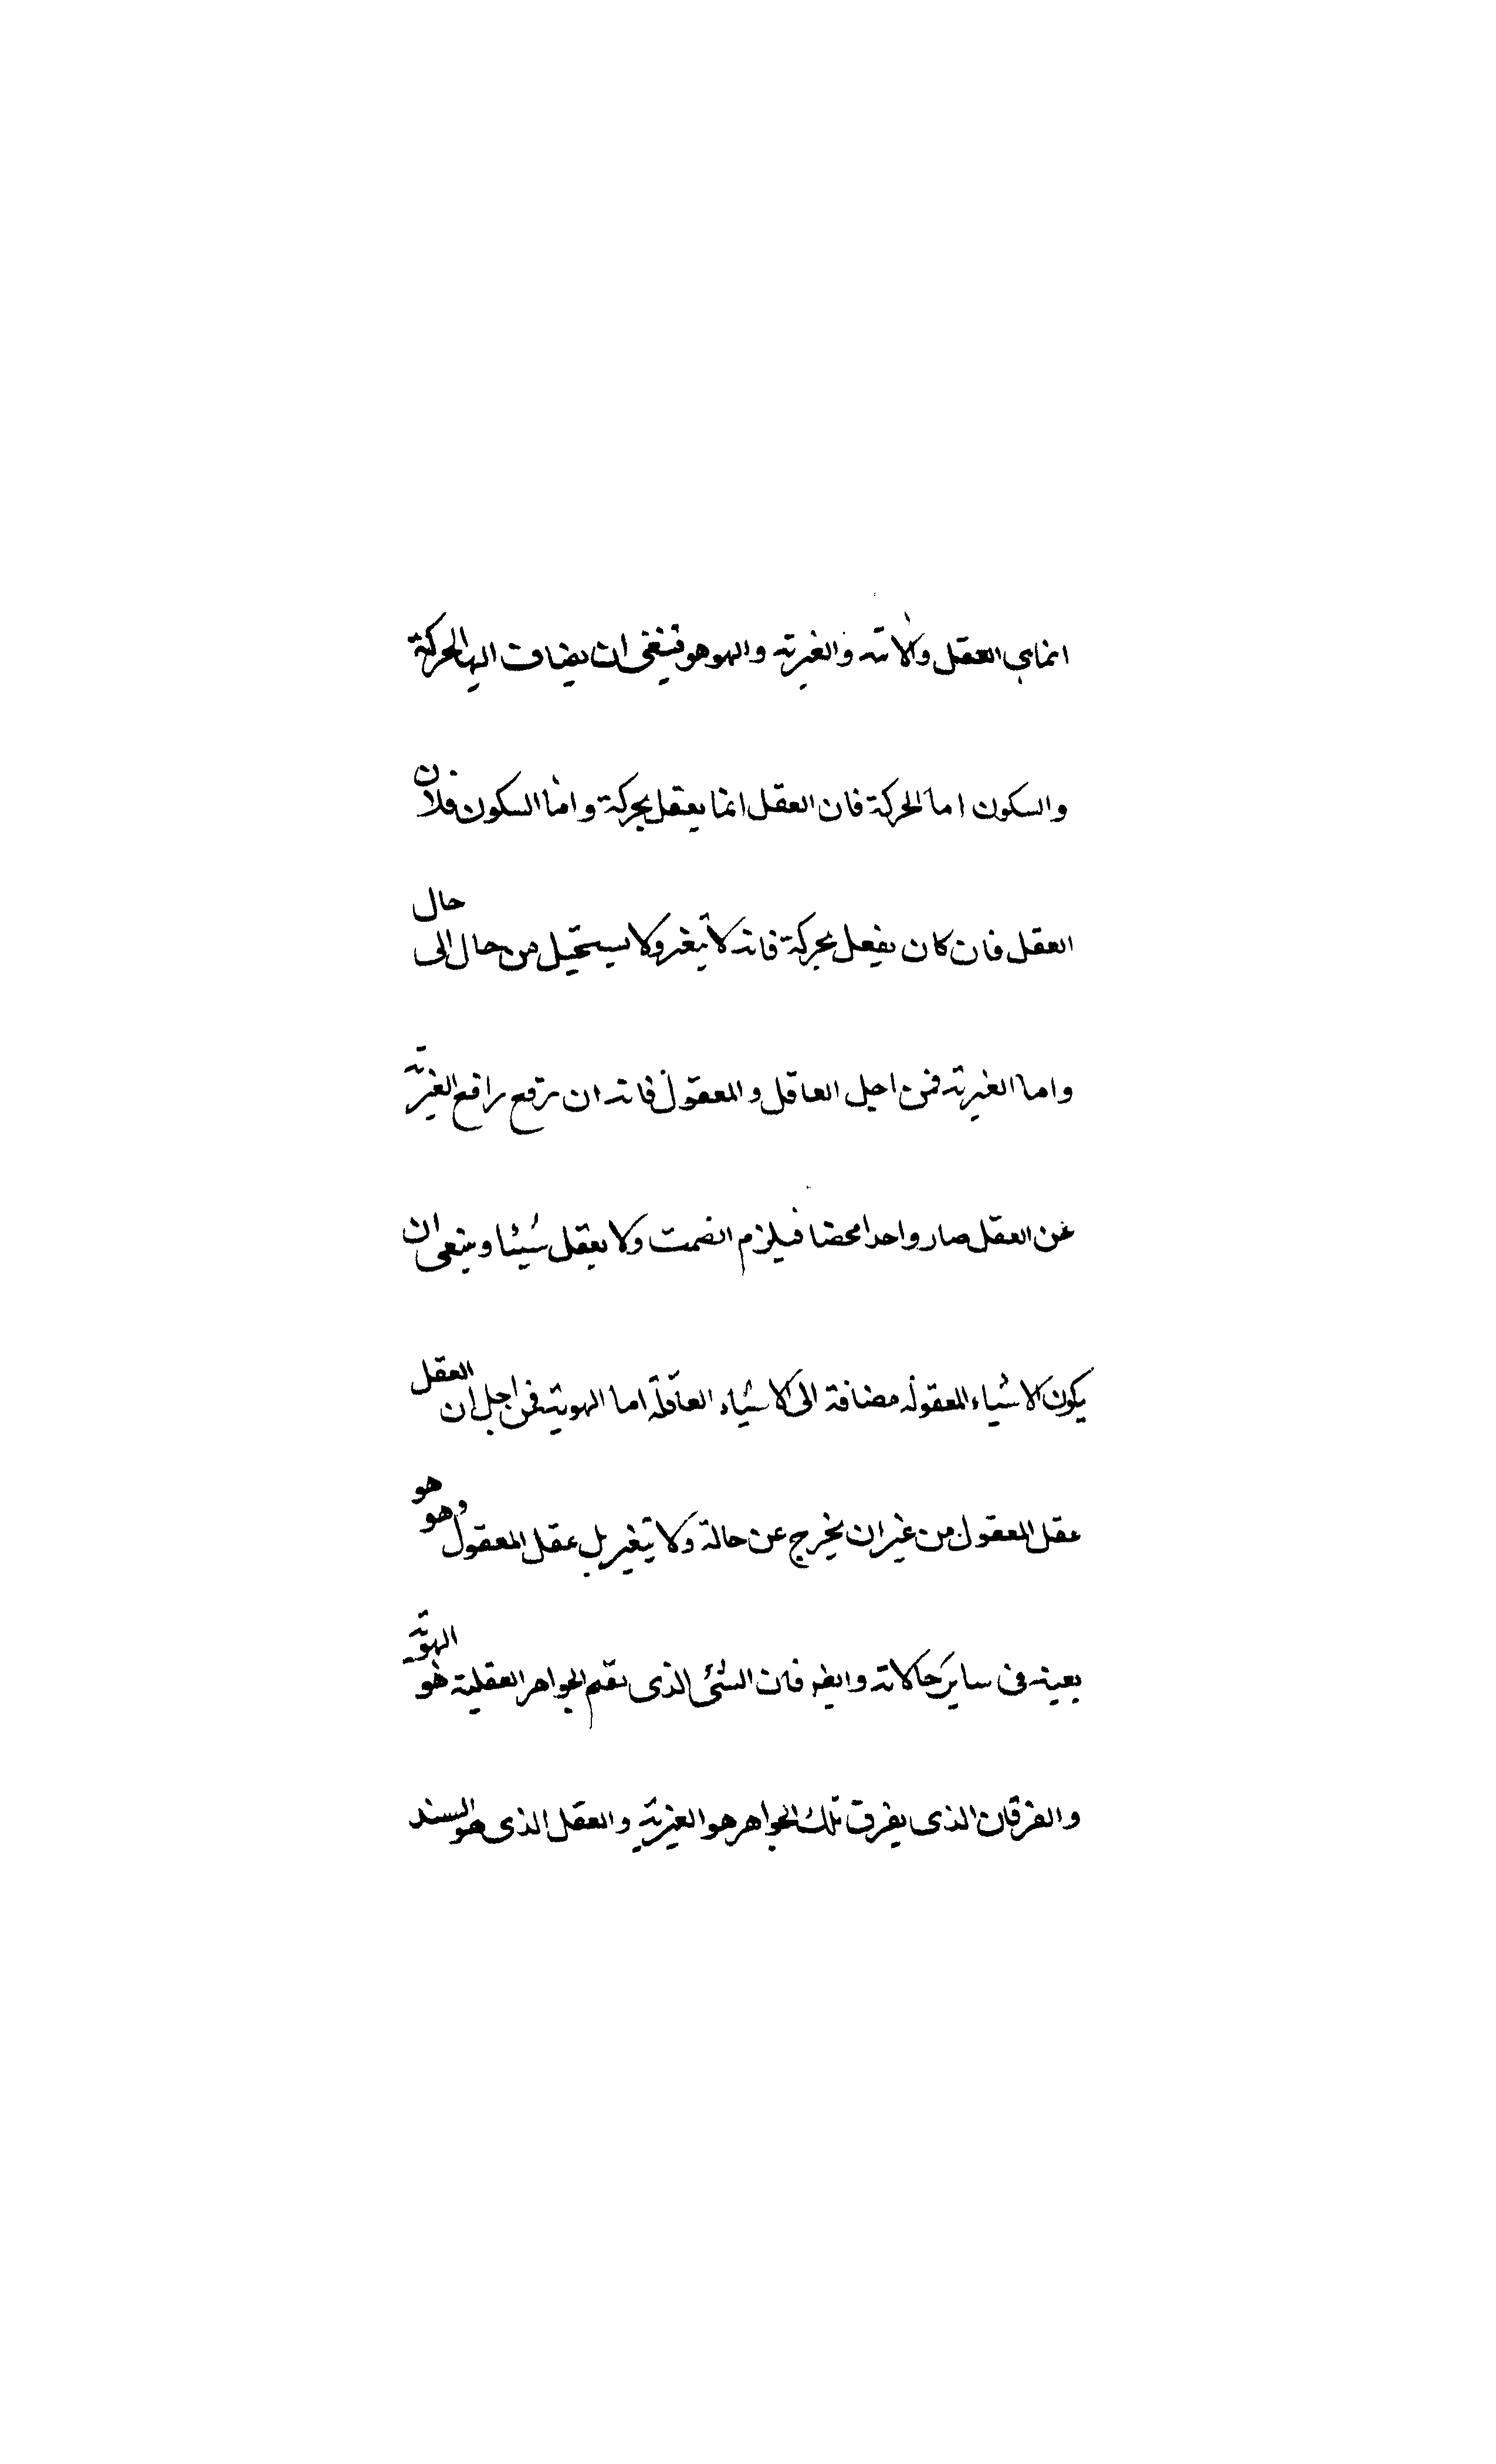 انماهى العقل والانه والغيرته والهوهو فينبغى ان يضاف اليها الحركة
والسكون اما الحركة فان العقل انما يعقل بحركة واما السكون فلان
العقل فان كان يفعل بحركة فانه لا يتغير ولا يستحيل من حال الى حال
واما الغيرته فمن اجل العاقل والمعقول فانه ان ترفع رافع الغيرته
عن العقل صار واحدا محضا فيلزم الصمت ولا يعقل شيئا وينبغى ان
يكون الاشياء المعقولة مضافة الى الاشياء العاقلة اما الهويته فمن اجل ان العقل
عقل المعقول من غير ان يخرج عن حالة ولا يتغير بل عقل المعقول وهو هو
بعينه فى ساير حالاته وايضا فان الشئ الذى يعم الجواهر العقلية هو الهوته
والفرقان الذى يفرق تلك الجواهر هو الغيرته والعقل الذى هو السند